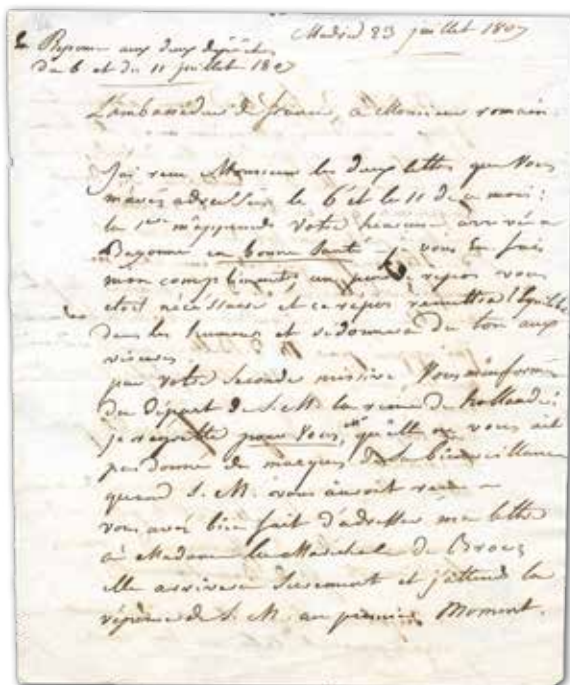 Madrid 23 juillet 1807
Reponse aux deux depêches
du 6 et du 11 juillet 180
L'ambassadeur de france, a Monsieur romain
J'ai recu Monsieur les deux lettres que Vous
m'avés adressées le 6 et le 11 de ce mois:
la 1ere m'apprends votre heureuse arrivée a
Bayonne en bonne santé je vous en fais
mon compliment, un peu repos vous
etoit nécessaire et ce repos remettra l'équilibre
dans les humeurs et redonnera du ton aux
viscères
par votre seconde missive, Vous m'informés
du départ de S. M. la reine de hollande:
je regrette pour Vous, qu'elle ne vous ait
pas donné de marques de sa bienveillance
quand S. M. vous auroit recu
vous avés bien fait d'adresser ma lettre
a Madame la Marechale de Broc;
elle arrivera surement et j'attends la
réponse de S. M. au premier Moment.